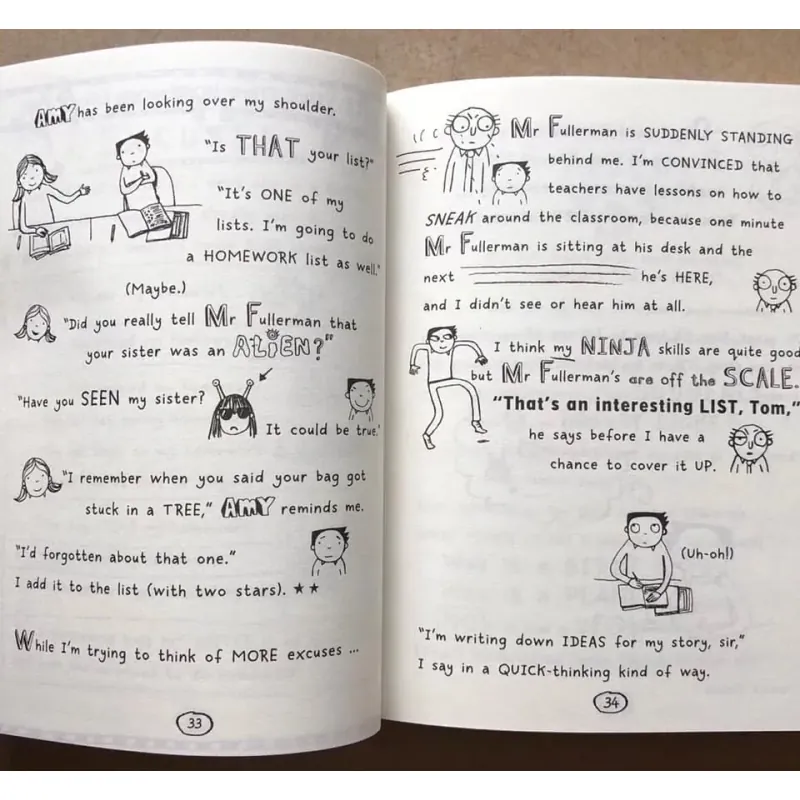 AMY has been looking over my shoulder.
"Is THAT your list?"
"It's ONE of my
lists. I'm going to do
a HOMEWORK list as well."
(Maybe.)
"Did you really tell Mr Fullerman that
your sister was an ALIEN?"
"Have you SEEN my sister?
It could be true."
"I remember when you said your bag got
stuck in a TREE," AMY reminds me.
"I'd forgotten about that one."
I add it to the list (with two stars). ★★
While I'm trying to think of MORE excuses ...
33
Mr Fullerman is SUDDENLY STANDING
behind me. I'm CONVINCED that
teachers have lessons on how to
SNEAK around the classroom, because one minute
Mr Fullerman is sitting at his desk and the
next he's HERE,
and I didn't see or hear him at all.
I think my NINJA skills are quite good
but Mr Fullerman's are off the SCALE.
"That's an interesting LIST, Tom,"
he says before I have a
chance to cover it UP.
(Uh-oh!)
"I'm writing down IDEAS for my story, sir,"
I say in a QUICK-thinking kind of way.
34